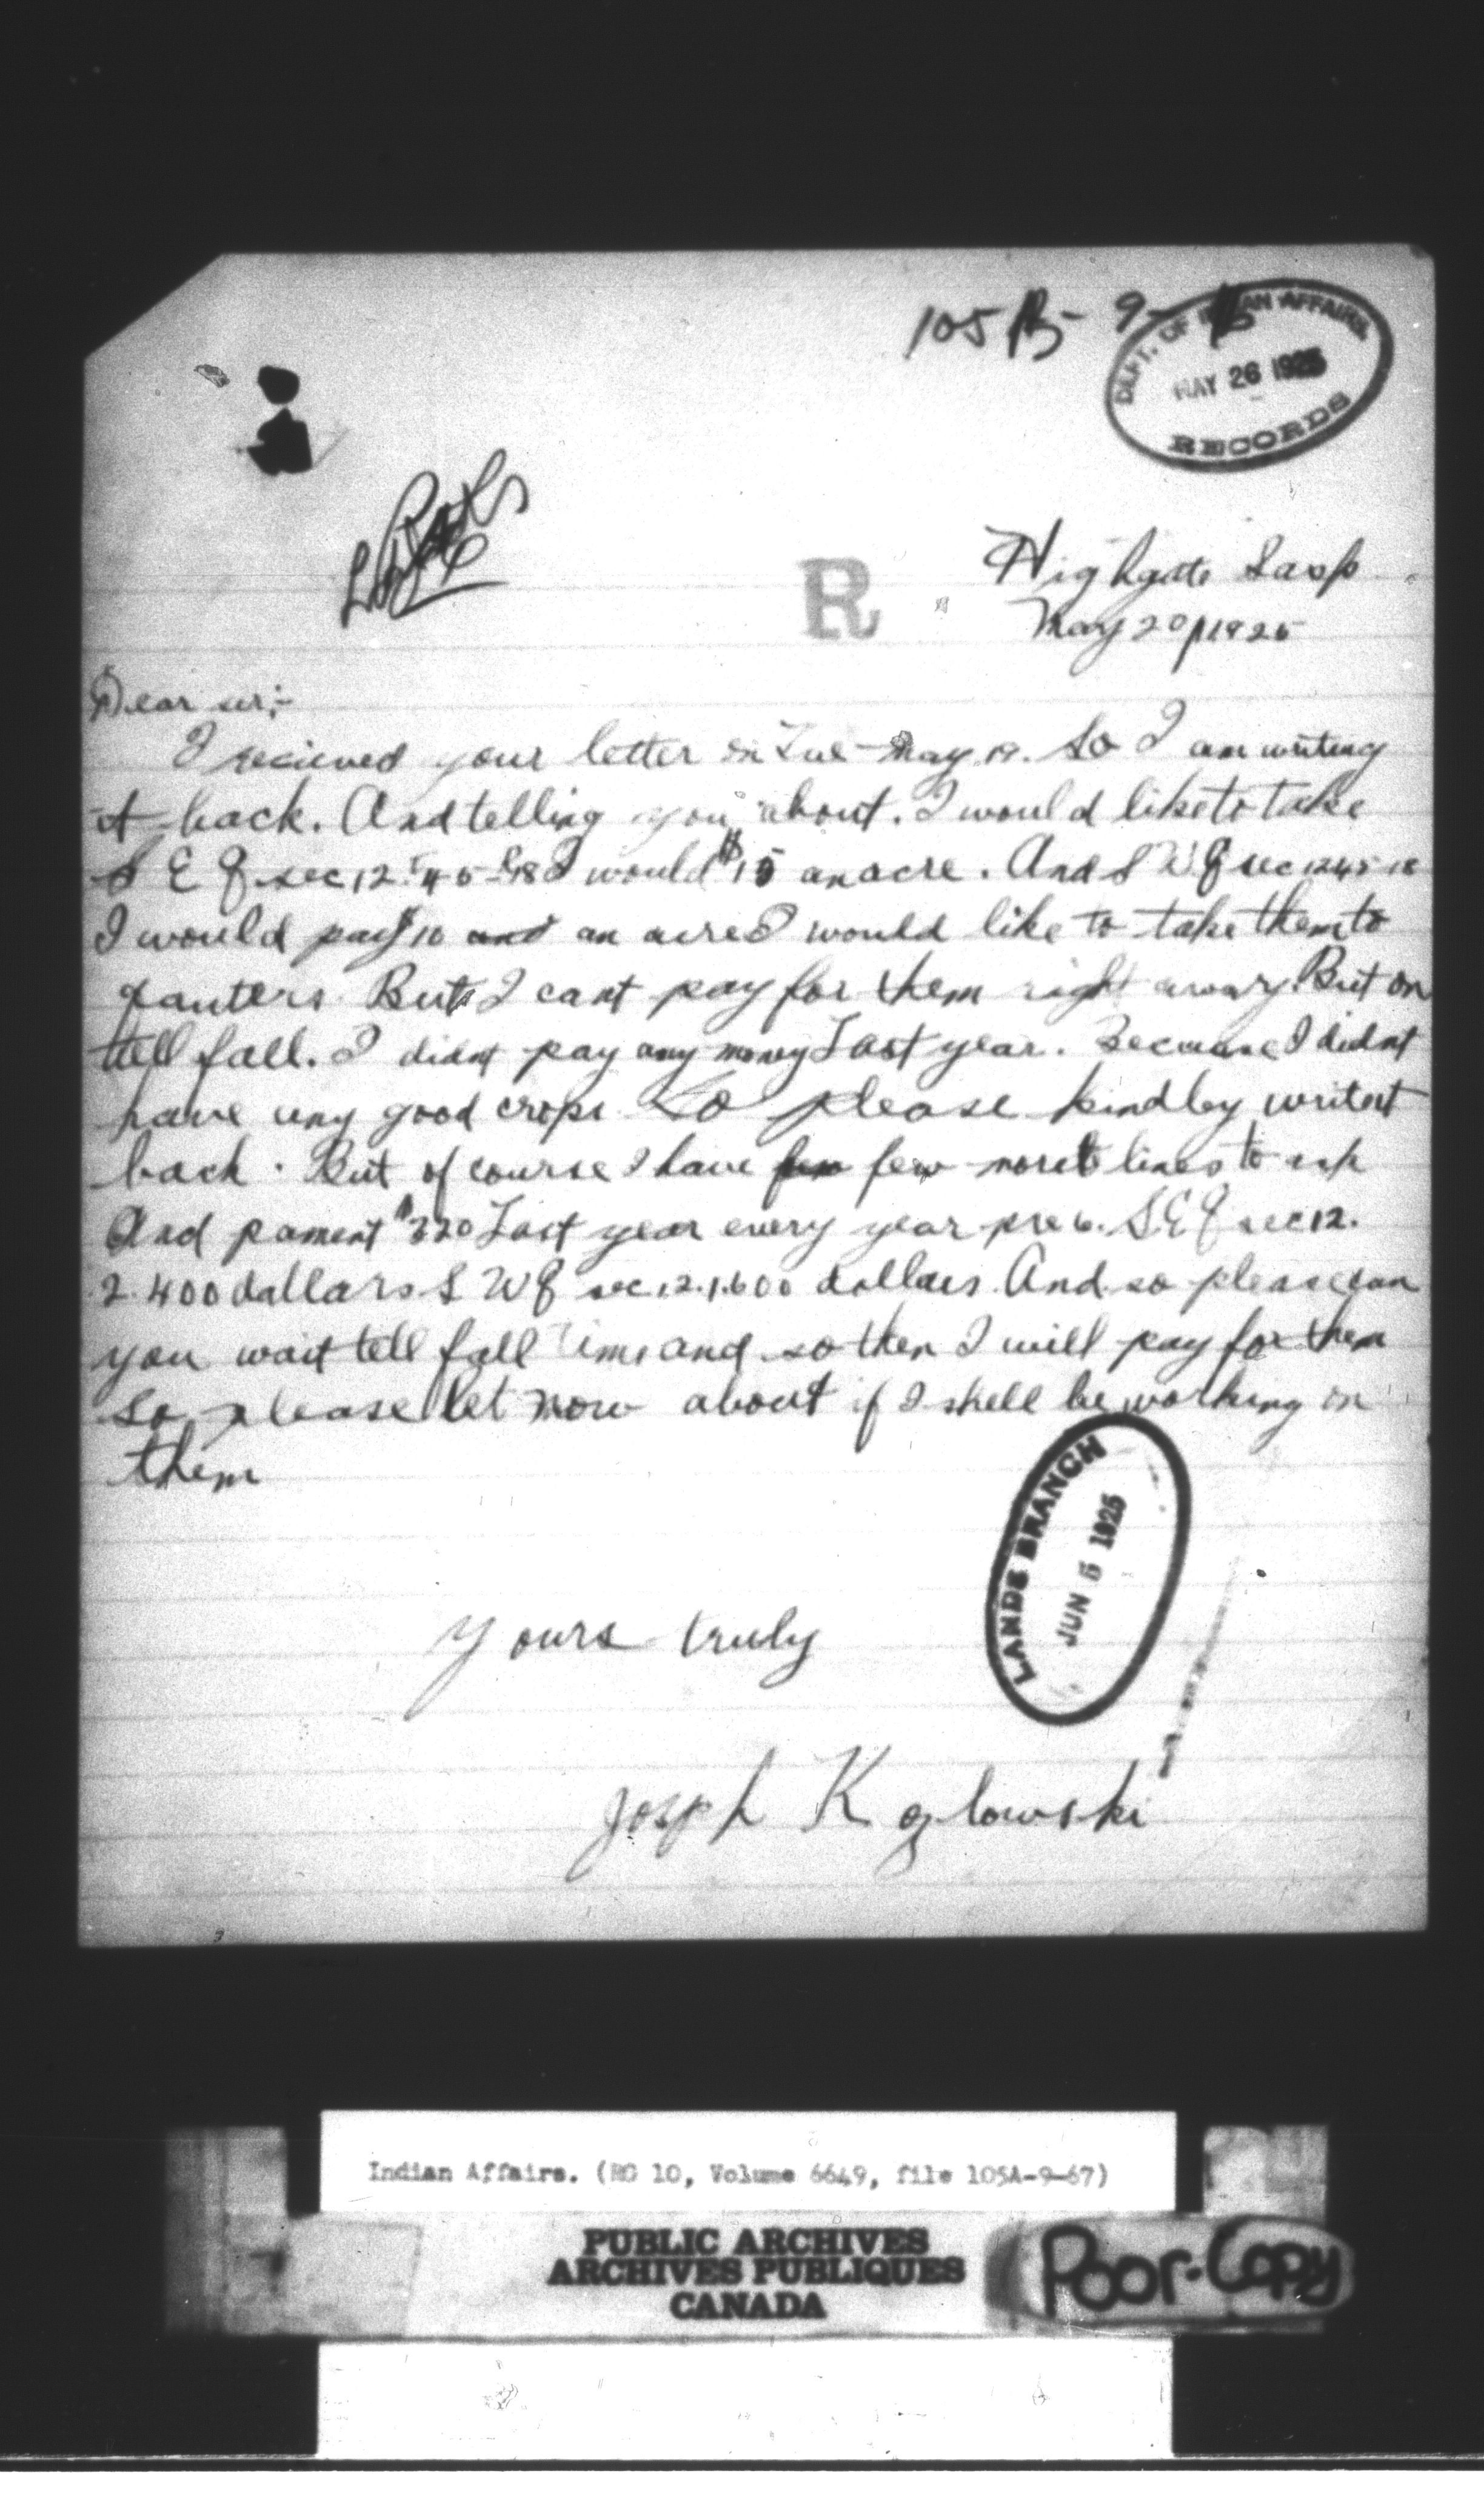 105 B - 9 -
DEPT. OF INDIAN AFFAIRS
MAY 26 1925
RECORDS
R
Highgate Sask
May 20/1925
Dear sir;-
I recieved your letter on Tue - May 19. So I am writing
it back. And telling you about. I would like to take
S E Q sec 12 T 45 R 18 I would $15 an acre. And S W Q sec 12 45 18
I would pay $10 and an acre I would like to take them to
qauters But I cant pay for them right away. But on
tell fall. I didnt pay any money Last year. Because I didnt
have any good crops So please kindley writ it
back. But of course I have few few more lines to ask
And pament $320 Last year every year pre 6. S.E Q sec 12.
2.400 dollars S W Q sec.12.1.600 dollars. And so please can
you wait tell fall Time and so then I will pay for them
so please let now about if I shell be working in
them
LANDS BRANCH
JUN 5 1925
Yours truly
Josph Kozlowski
Indian Affairs. (RG 10, Volume 6649, file 105A-9-67)
PUBLIC ARCHIVES
ARCHIVES PUBLIQUES
CANADA
Poor-Copy